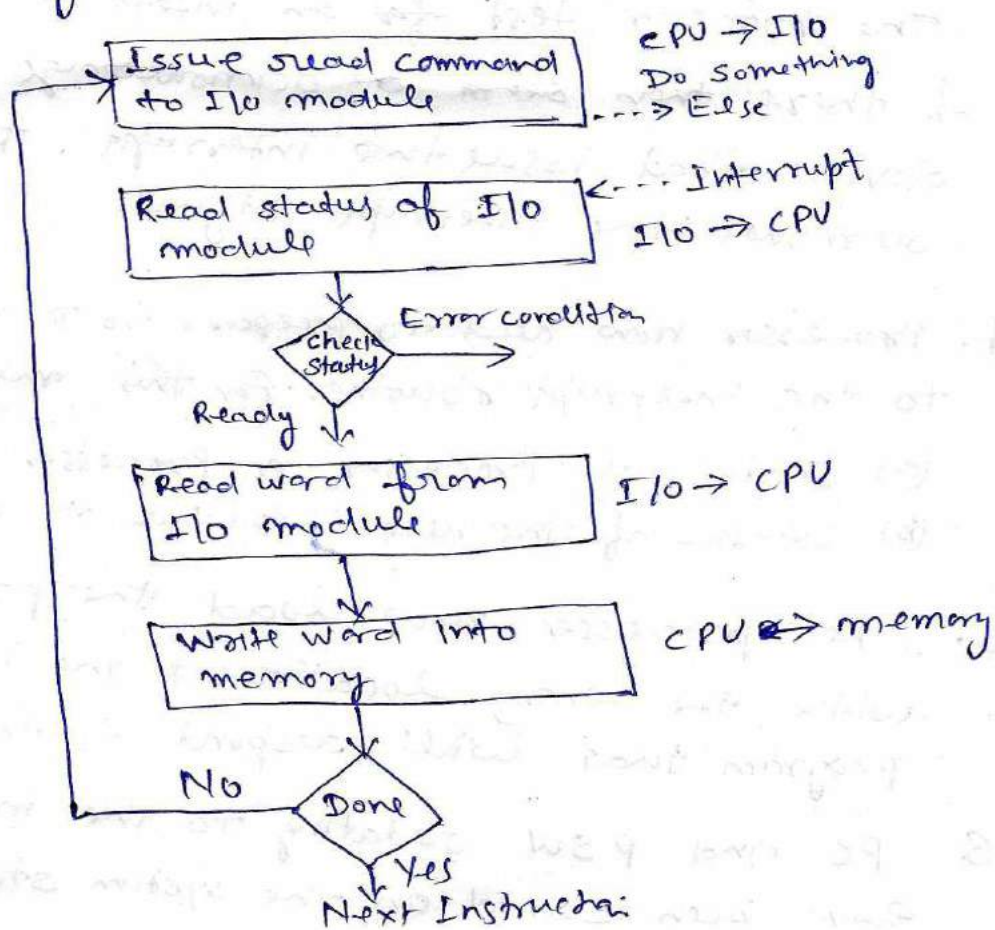 Issue read command
to I/O module
CPU → I/O
Do something
----> Else
Read status of I/O
module
<---- Interrupt
I/O → CPU
Check
Status
Error condition
Ready
Read word from
I/O module
I/O → CPU
Write word into
memory
CPU → memory
No
Done
Yes
Next Instruction